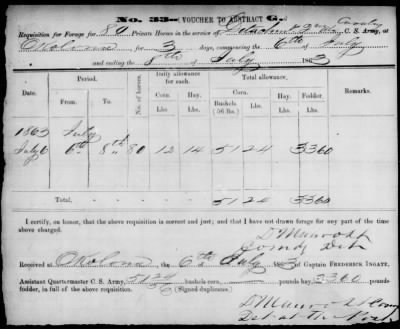 No. 33 VOUCHER TO ABSTRACT G.
Requisition for Forage for 80 Private Horses in the service of Detachment 2nd Cavalry C. S. Army, at
Okolona for 3 days, commencing the 6th of July
and ending the 8th of July 1863
Date. Period. No. of horses. Daily allowance for each. Total allowance.
From. To. Corn. Hay. Corn. Hay. Fodder.
Lbs. Lbs. Bushels (56 lbs.) Lbs. Lbs. Lbs.
1863 July
July 6 6th 8th 80 12 14 51 24 3360
Total, 51 24 3360
I certify, on honor, that the above requisition is correct and just; and that I have not drawn forage for any part of the time
above charged.
Comdg Det
Received at Okolona the 6th July 1863 of Captain FREDERICK INGATE,
Assistant Quartermaster C. S. Army, 51 24 bushels corn, pounds hay 3360 pounds
fodder, in full of the above requisition. (Signed duplicates.)